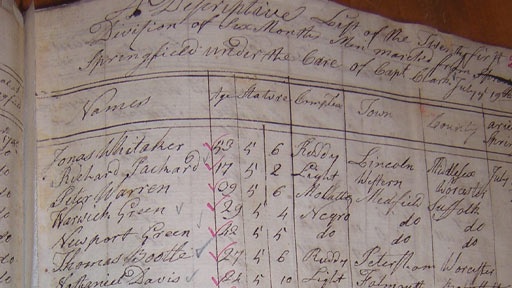 A Descriptive List of the Twenty first
Division of Six Months Men marched from
Springfield under the Care of Capt. Clark July 19th
Names Age Stature Complex Town County
Jonas Whitaker 53 5 6 Ruddy Lincoln Middlesex July
Richard Packard 17 5 2 Light Western Worcester
Peter Warren 29 5 6 Molatto Medfield Suffolk
Warwick Green 29 5 4 Negro do do
Newport Green 42 5 5 do do do
Thomas Bootle 27 5 6 Ruddy Petersham Worcester
Nathaniel Davis 24 5 10 Light